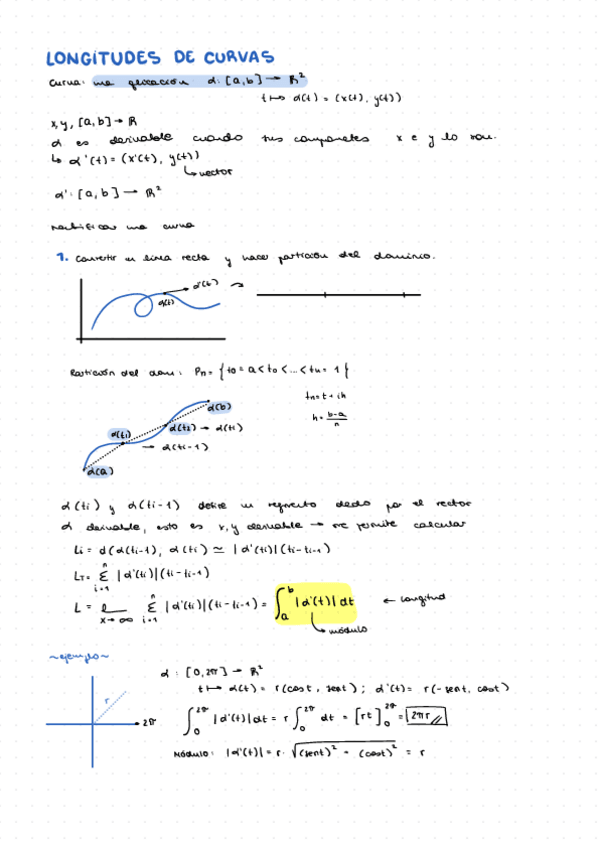 LONGITUDES DE CURVAS
curva: una aplicación α: [a,b] → R²
t ↦ α(t) = (x(t), y(t))
x, y, [a,b] → R
α es derivable cuando sus componetes x e y lo son.
↳ α'(t) = (x'(t), y(t))
↳ vector
α': [a,b] → R²
rectificar una curva
1. Convertir en línea recta y hacer partición del dominio.
α'(t)
α(t)
Partición del dom: Pn = { t0 = a < t0 < ... < tn = 1 }
tn = t + ih
h = b-a/n
α(b)
α(ti)
α(ti) → α(ti)
→ α(ti-1)
α(a)
α(ti) y α(ti-1) define un segmento dado por el vector
α derivable, esto es x, y derivable → me permite calcular
Li = d(α(ti-1), α(ti) ≃ |α'(ti)|(ti - ti-1)
LT = Σ i=1 n |α'(ti)|(ti - ti-1)
L = x→∞ Σ i=1 n |α'(ti)|(ti - ti-1) = ∫ a b |α'(t)| dt ← longitud
↳ módulo
~ejemplo~
α : [0, 2π] → R²
t ↦ α(t) = r(cost, sent) ; α'(t) = r(-sent, cost)
r
2π
∫ 0 2π |α'(t)| dt = r ∫ 0 2π dt = [rt] 0 2π = 2πr
MÓDULO: |α'(t)| = r · √(sent)² - (cost)² = r